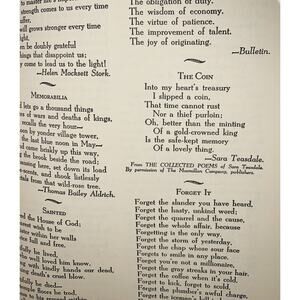 strength comes to us every time
suffer,
will grows stronger every time
fight,
be doubly grateful
things that disappoint us;
come to lead us to the light!
—Helen Mochsett Stork.
MEMORABILIA
lets go a thousand things
of wars and deaths of kings,
recalls the very hour—
by yonder village tower,
the last blue noon in May—
came briskly up this way,
the brook beside the road;
here, set down its load
and shook listlessly
from that wild-rose tree.
—Thomas Bailey Aldrich.
SAINTED
the House of God;
wish to be
within four walls
full and free.
be lived,
who will love him dead,
with kindly hands our dead,
dead's cruel blow.
be died
The obligation of duty.
The wisdom of economy.
The virtue of patience.
The improvement of talent.
The joy of originating.
—Bulletin.
THE COIN
Into my heart's treasury
I slipped a coin,
That time cannot rust
Nor a thief purloin;
Oh, better than the minting
Of a gold-crowned king
Is the safe-kept memory
Of a lovely thing.
—Sara Teasdale.
From THE COLLECTED POEMS of Sara Teasdale.
By permission of The Macmillan Company, publishers.
FORGET IT
Forget the slander you have heard,
Forget the hasty, unkind word;
Forget the quarrel and the cause,
Forget the whole affair, because
Forgetting is the only way,
Forget the storm of yesterday,
Forget the chap whose sour face
Forgets to smile in any place.
Forget you're not a millionaire,
Forget the gray streaks in your hair.
Forget the coffee when it's cold,
Forget to kick, forget to scold,
Forget the plumber's awful charge,
Forget the iceman's